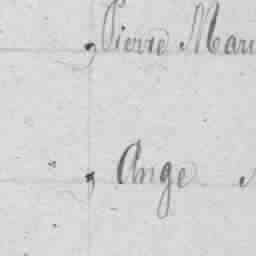 , Pierre Mari
, Ange